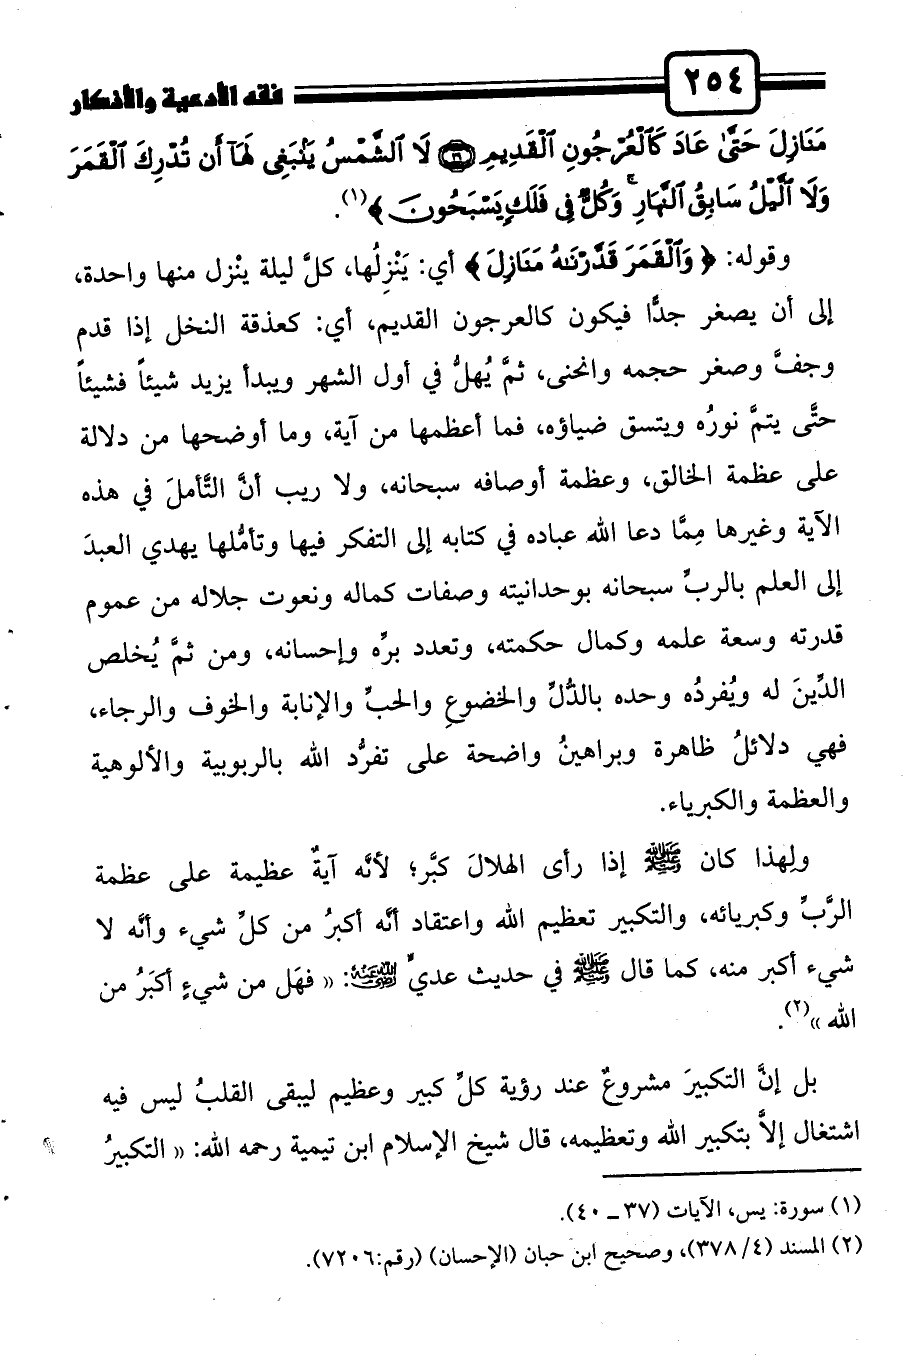 ٢٥٤ فقه الأدعية والأذكار
مَنَازِلَ حَتَّىٰ عَادَ كَٱلْعُرْجُونِ ٱلْقَدِيمِ ﴿٣٩﴾ لَا ٱلشَّمْسُ يَنۢبَغِى لَهَآ أَن تُدْرِكَ ٱلْقَمَرَ
وَلَا ٱلَّيْلُ سَابِقُ ٱلنَّهَارِ ۚ وَكُلٌّ فِى فَلَكٍ يَسْبَحُونَ ﴾(١).
وقوله: ﴿ وَٱلْقَمَرَ قَدَّرْنَـٰهُ مَنَازِلَ ﴾ أي: يَنْزِلُها، كلَّ ليلة ينْزل منها واحدة،
إلى أن يصغر جدًّا فيكون كالعرجون القديم، أي: كعذقة النخل إذا قدم
وجفَّ وصغر حجمه وانحنى، ثمَّ يُهلُّ في أول الشهر ويبدأ يزيد شيئاً فشيئاً
حتَّى يتمَّ نورُه ويتسق ضياؤه، فما أعظمها من آية، وما أوضحها من دلالة
على عظمة الخالق، وعظمة أوصافه سبحانه، ولا ريب أنَّ التَّأملَ في هذه
الآية وغيرها مِمَّا دعا الله عباده في كتابه إلى التفكر فيها وتأمُّلها يهدي العبدَ
إلى العلم بالربِّ سبحانه بوحدانيته وصفات كماله ونعوت جلاله من عموم
قدرته وسعة علمه وكمال حكمته، وتعدد برِّه وإحسانه، ومن ثمَّ يُخلص
الدِّينَ له ويُفردُه وحده بالذُّلِّ والخضوعِ والحبِّ والإنابة والخوف والرجاء،
فهي دلائلُ ظاهرة وبراهينُ واضحة على تفرُّد الله بالربوبية والألوهية
والعظمة والكبرياء.
ولِهذا كان ﷺ إذا رأى الهلالَ كبَّر؛ لأنَّه آيةٌ عظيمة على عظمة
الرَّبِّ وكبريائه، والتكبير تعظيم الله واعتقاد أنَّه أكبرُ من كلِّ شيء وأنَّه لا
شيء أكبر منه، كما قال ﷺ في حديث عديٍّ رضي الله عنه: « فهَل من شيءٍ أكبَرُ من
الله »(٢).
بل إنَّ التكبيرَ مشروعٌ عند رؤية كلِّ كبير وعظيم ليبقى القلبُ ليس فيه
اشتغال إلاَّ بتكبير الله وتعظيمه، قال شيخ الإسلام ابن تيمية رحمه الله: « التكبيرُ
(١) سورة: يس، الآيات (٣٧ ــ ٤٠).
(٢) المسند (٣٧٨/٤)، وصحيح ابن حبان (الإحسان) (رقم:٧٢٠٦).